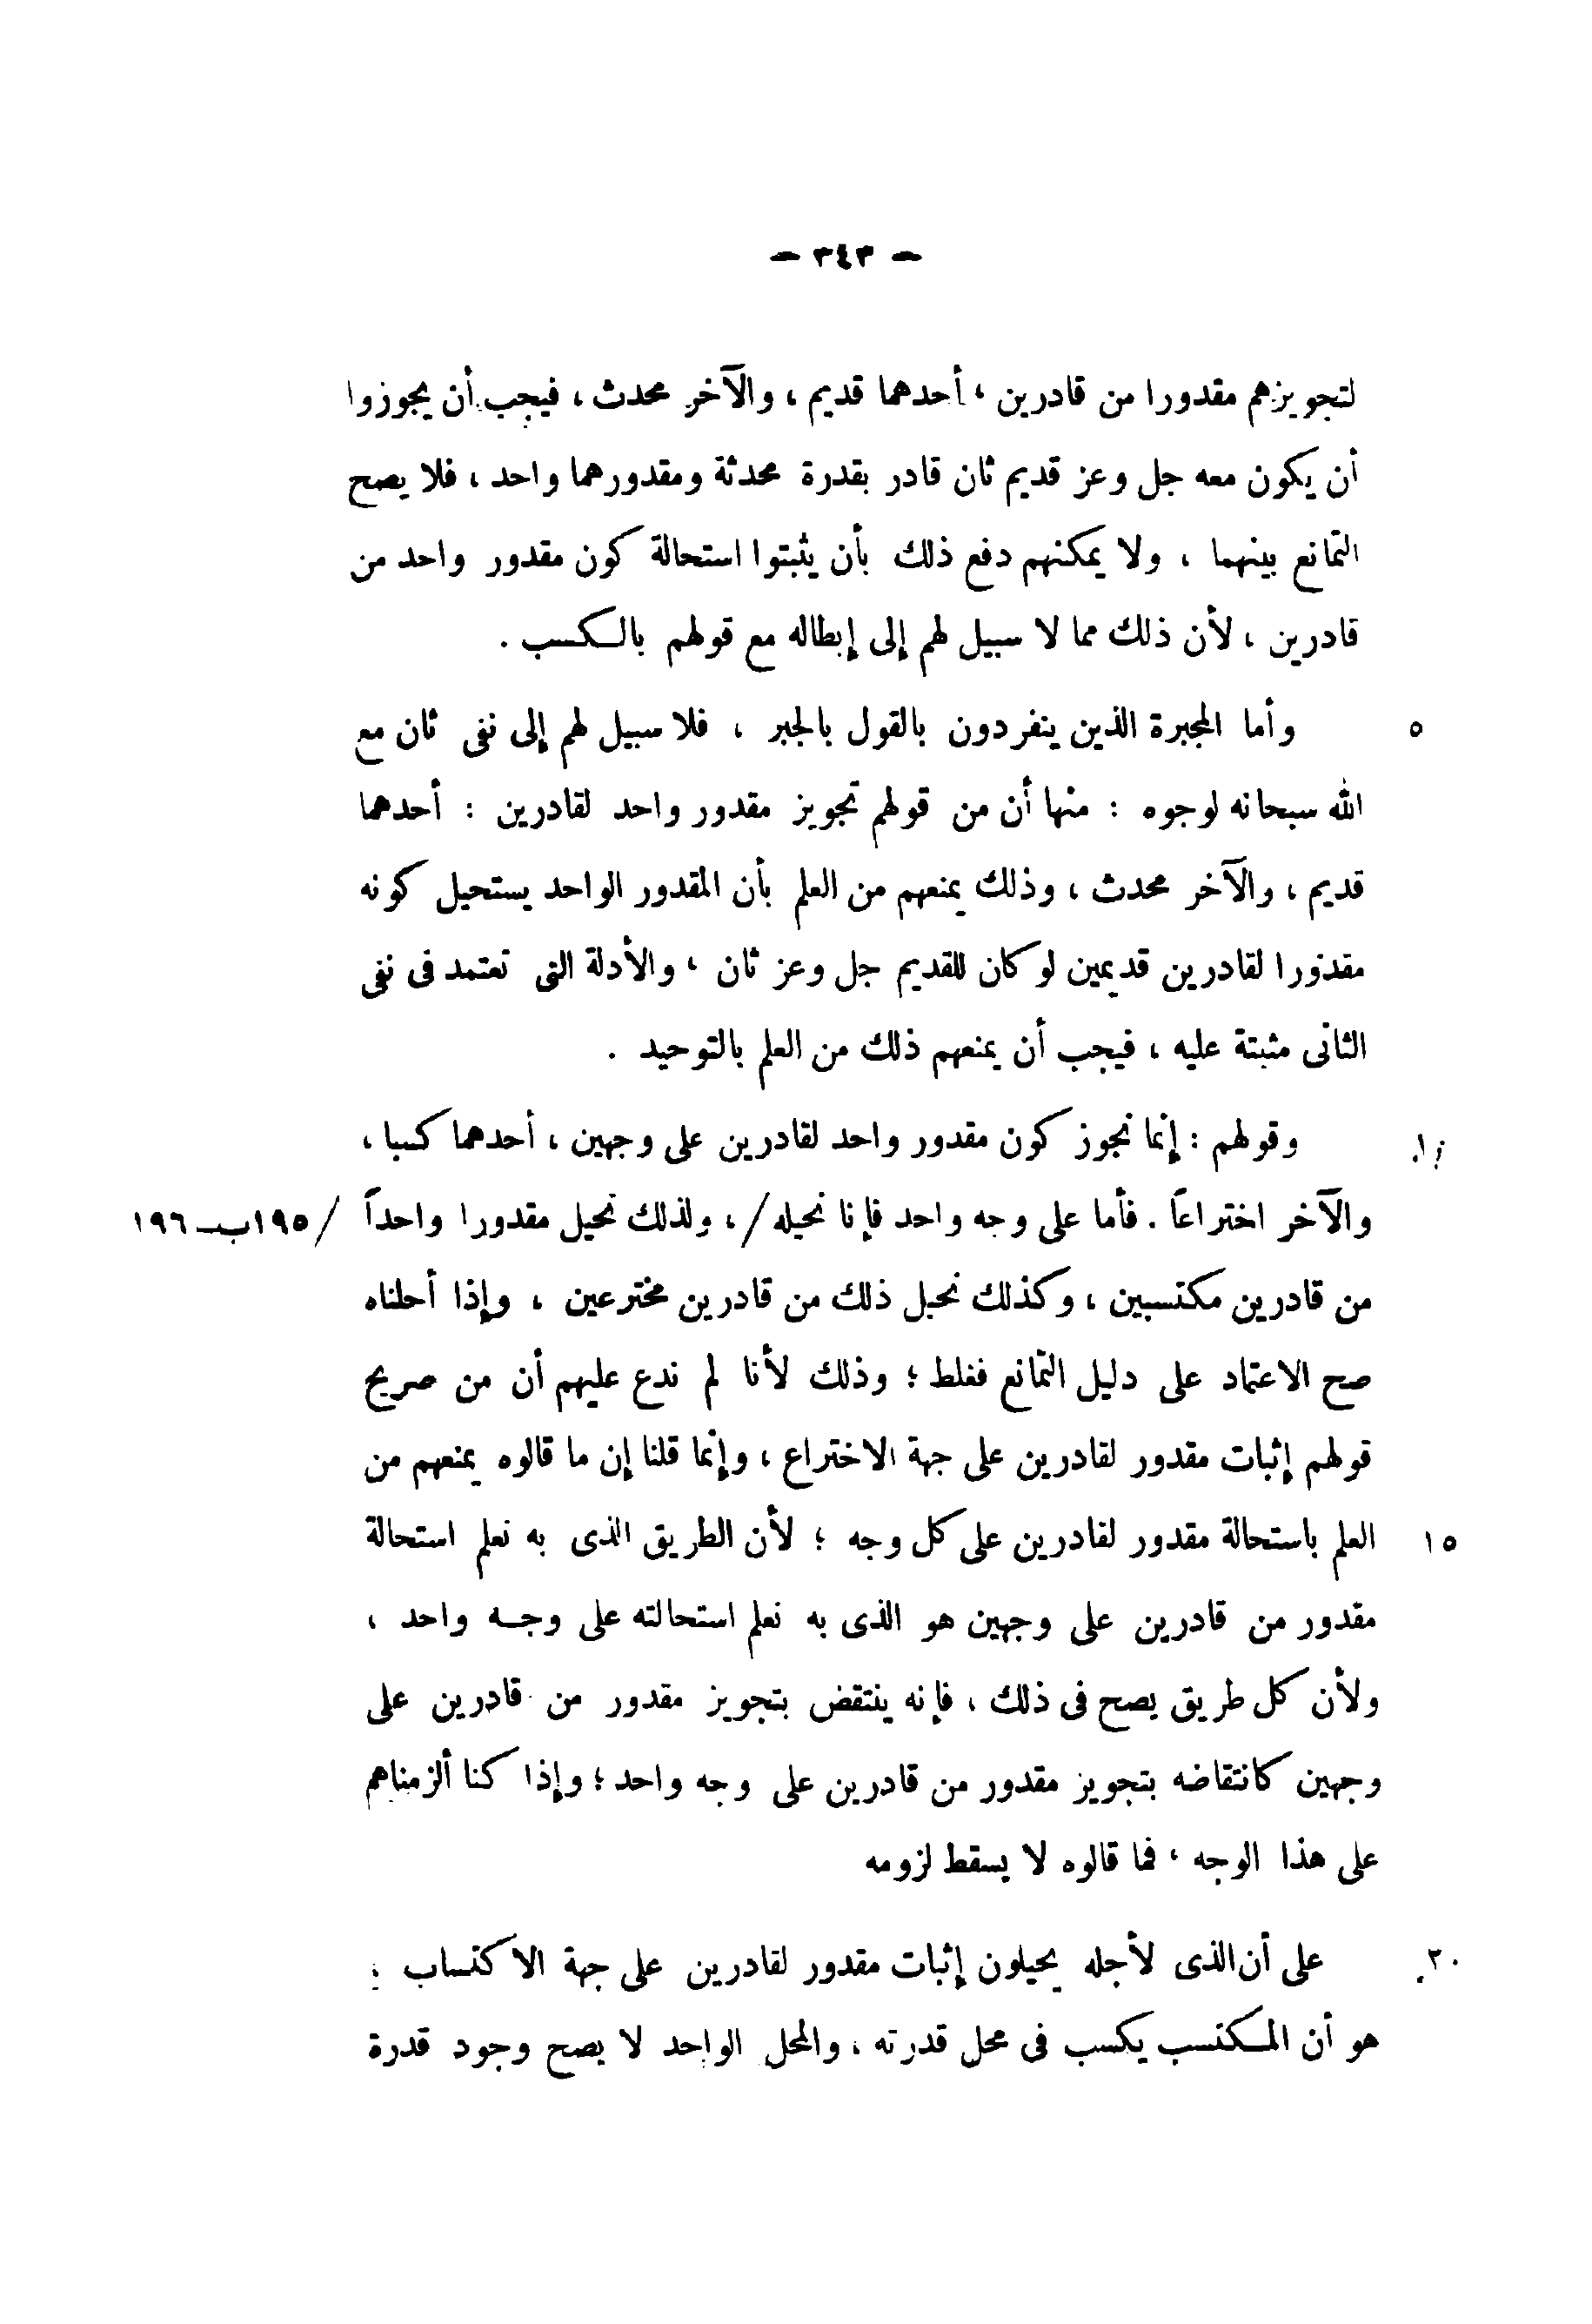 — ٣٤٣ —
لتجويزهم مقدورا من قادرين ، أحدهما قديم ، والآخر محدث ، فيجب أن يجوزوا
أن يكون معه جل وعز قديم ثان قادر بقدرة محدثة ومقدورهما واحد ، فلا يصح
التمانع بينهما ، ولا يمكنهم دفع ذلك بأن يثبتوا استحالة كون مقدور واحد من
قادرين ، لأن ذلك مما لا سبيل لهم إلى إبطاله مع قولهم بالكسب .
وأما المجبرة الذين ينفردون بالقول بالجبر ، فلا سبيل لهم إلى نفى ثان مع ٥
الله سبحانه لوجوه : منها أن من قولهم تجويز مقدور واحد لقادرين : أحدهما
قديم ، والآخر محدث ، وذلك يمنعهم من العلم بأن المقدور الواحد يستحيل كونه
مقدورا لقادرين قديمين لو كان للقديم جل وعز ثان ، والأدلة التى تعتمد فى نفى
الثانى مثبتة عليه ، فيجب أن يمنعهم ذلك من العلم بالتوحيد .
وقولهم : إنما نجوز كون مقدور واحد لقادرين على وجهين ، أحدهما كسبا ، ١٠
والآخر اختراعاً . فأما على وجه واحد فإنا نحيله / ، ولذلك نحيل مقدورا واحداً / ١٩٥ب — ١٩٦
من قادرين مكتسبين ، وكذلك نحيل ذلك من قادرين مخترعين ، وإذا أحلناه
صح الاعتماد على دليل التمانع فغلط ؛ وذلك لأنا لم ندع عليهم أن من صريح
قولهم إثبات مقدور لقادرين على جهة الاختراع ، وإنما قلنا إن ما قالوه يمنعهم من
العلم باستحالة مقدور لقادرين على كل وجه ؛ لأن الطريق الذى به نعلم استحالة ١٥
مقدور من قادرين على وجهين هو الذى به نعلم استحالته على وجه واحد ،
ولأن كل طريق يصح فى ذلك ، فإنه ينتقض بتجويز مقدور من قادرين على
وجهين كانتقاضه بتجويز مقدور من قادرين على وجه واحد ؛ وإذا كنا ألزمناهم
على هذا الوجه ، فما قالوه لا يسقط لزومه
على أن الذى لأجله يحيلون إثبات مقدور لقادرين على جهة الاكتساب ؛ ٢٠
هو أن المكتسب يكسب فى محل قدرته ، والمحل الواحد لا يصح وجود قدرة